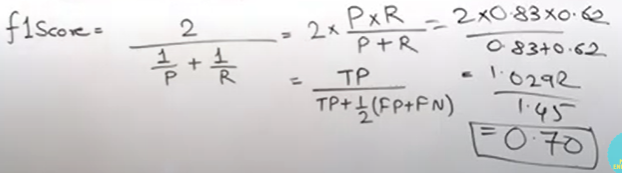 f1Score = 2 / (1/P + 1/R) = 2 × (P×R)/(P+R) = (2×0.83×0.62)/(0.83+0.62)
= TP / (TP + 1/2 (FP+FN)) = 1.0292 / 1.45
= 0.70